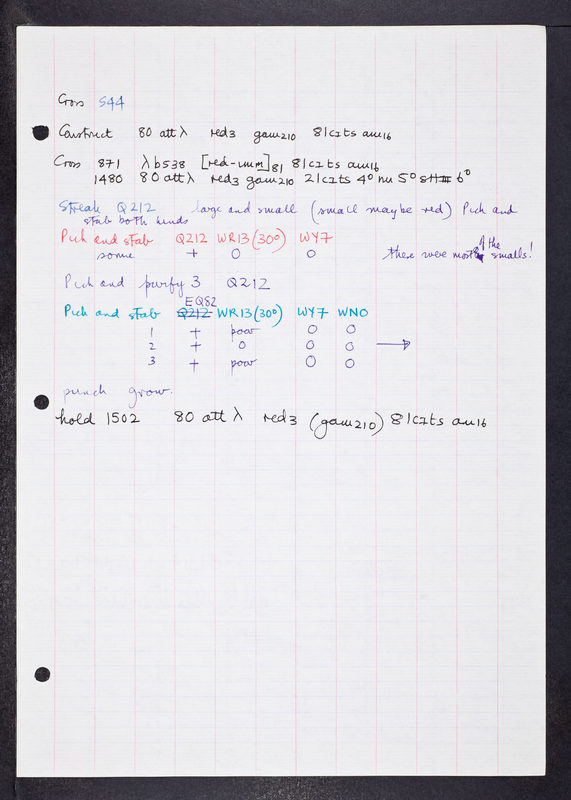 Cross 544
Construct 80 att λ red3 gam210 81 cIts am16
Cross 871 λb538 [red-imm]81 81 cIts am16
1480 80 att λ red3 gam210 21 cIts 4° nu 5° 6°
Streak Q212 large and small (small maybe red) Pick and
stab both kinds
Pick and stab Q212 WR13 (30°) WY7
some + 0 0 there were most of the smalls!
Pick and purify 3 Q212
EQ82
Pick and stab Q212 WR13 (30°) WY7 WNO
1 + poor 0 0
2 + 0 0 0 →
3 + poor 0 0
punch grow.
hold 1502 80 att λ red3 (gam210) 81 cIts am16